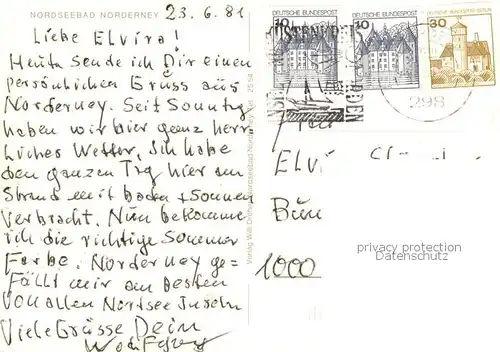 NORDSEEBAD NORDERNEY
23.6.81
Liebe Elvira!
Heute sende ich Dir einen
persönlichen Gruss aus
Norderney. Seit Sonntag
haben wir hier ganz herr
liches Wetter. Ich habe
den ganzen Tag hier am
Strand mit baden + Sonnen
verbracht. Nun bekomme
ich die richtige Sommer
Farbe. Norderney ge=
fällt mir am besten
von allen Nordsee Inseln
Viele Grüsse Dein
Wolfgang
DEUTSCHE BUNDESPOST
10
DEUTSCHE BUNDESPOST
10
DEUTSCHE BUNDESPOST BERLIN
30
298
Frau
Elvi
1000
privacy protection
Datenschutz